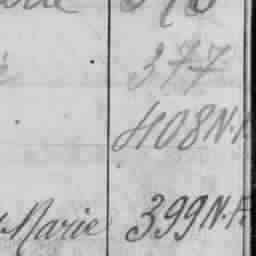 377
408 N.F.
Marie 399 N.F.